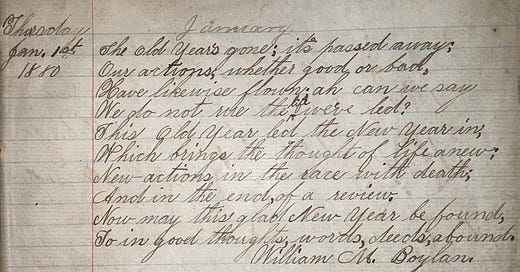 January
Thursday
Jan. 1st
1880
The Old Year's gone; it's passed away;
Our actions, whether good or bad,
Have likewise flown; ah can we say
We do not rue the were led?
This Old Year led the New Year in,
Which brings the thought of life anew;
New actions in the race with death;
And in the end, of a review.
Now may this glad New Year be found,
To in good thoughts, words, deeds, abound.
William M. Boylan.